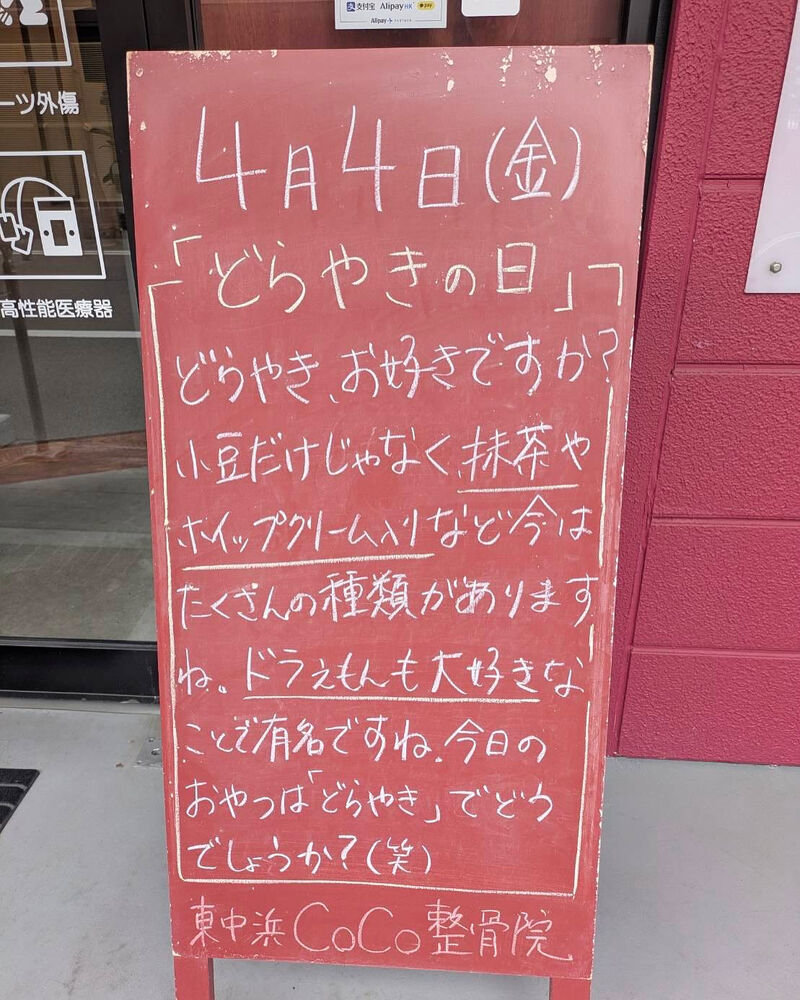 支付宝 Alipay HK pay
Alipay+ PARTNER
ーツ外傷
高性能医療器
4月4日(金)
「どらやきの日」
どらやき、お好きですか?
小豆だけじゃなく、抹茶や
ホイップクリーム入りなど今は
たくさんの種類があります
ね。ドラえもんも大好きな
ことで有名ですね。今日の
おやつは「どらやき」でどう
でしょうか?(笑)
東中浜CoCo整骨院